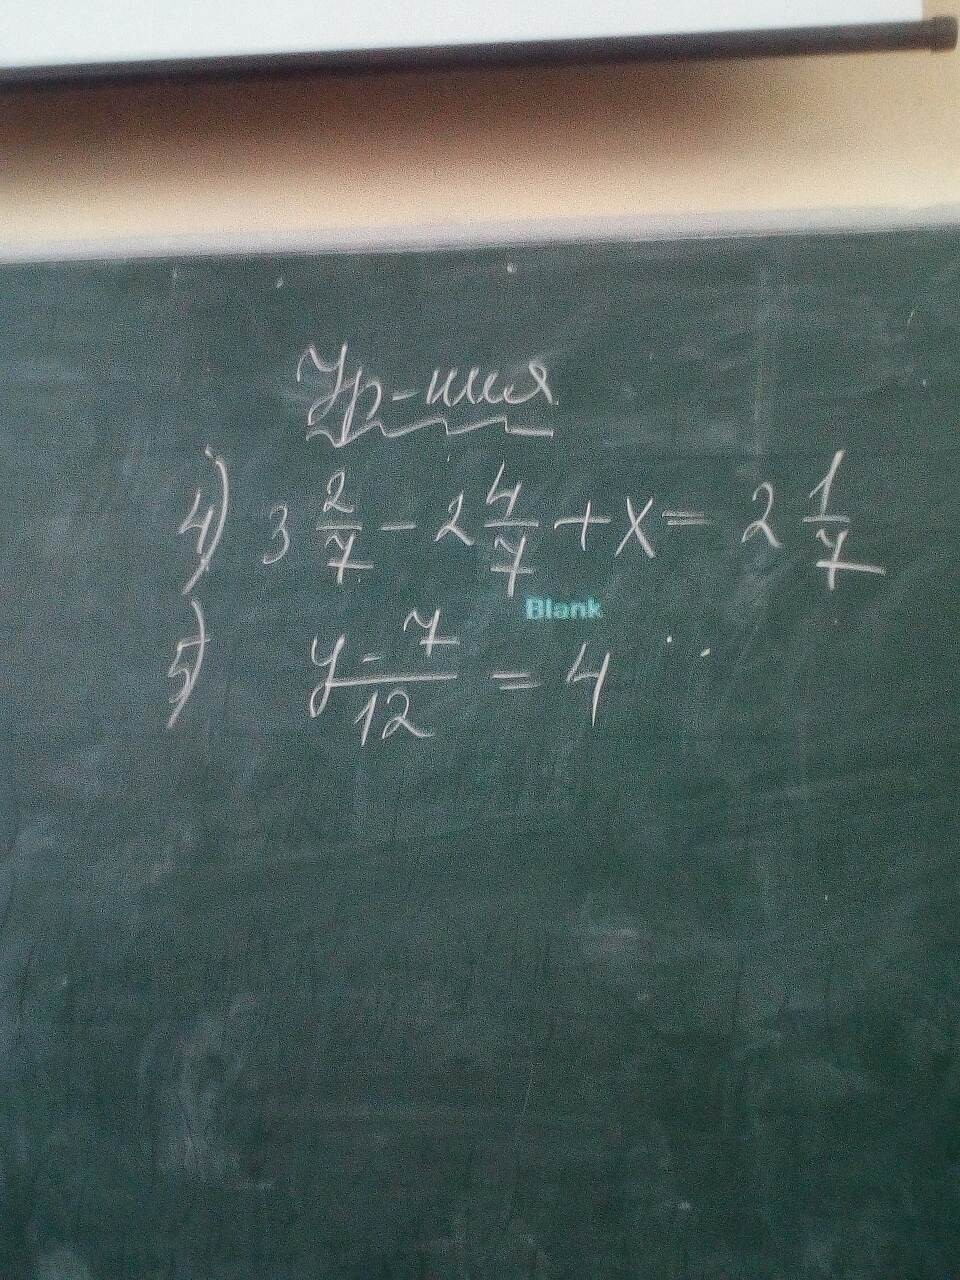 Ур-ния
4) 3 2/7 - 2 4/7 + x = 2 1/7
Blank
5) (y - 7)/12 = 4